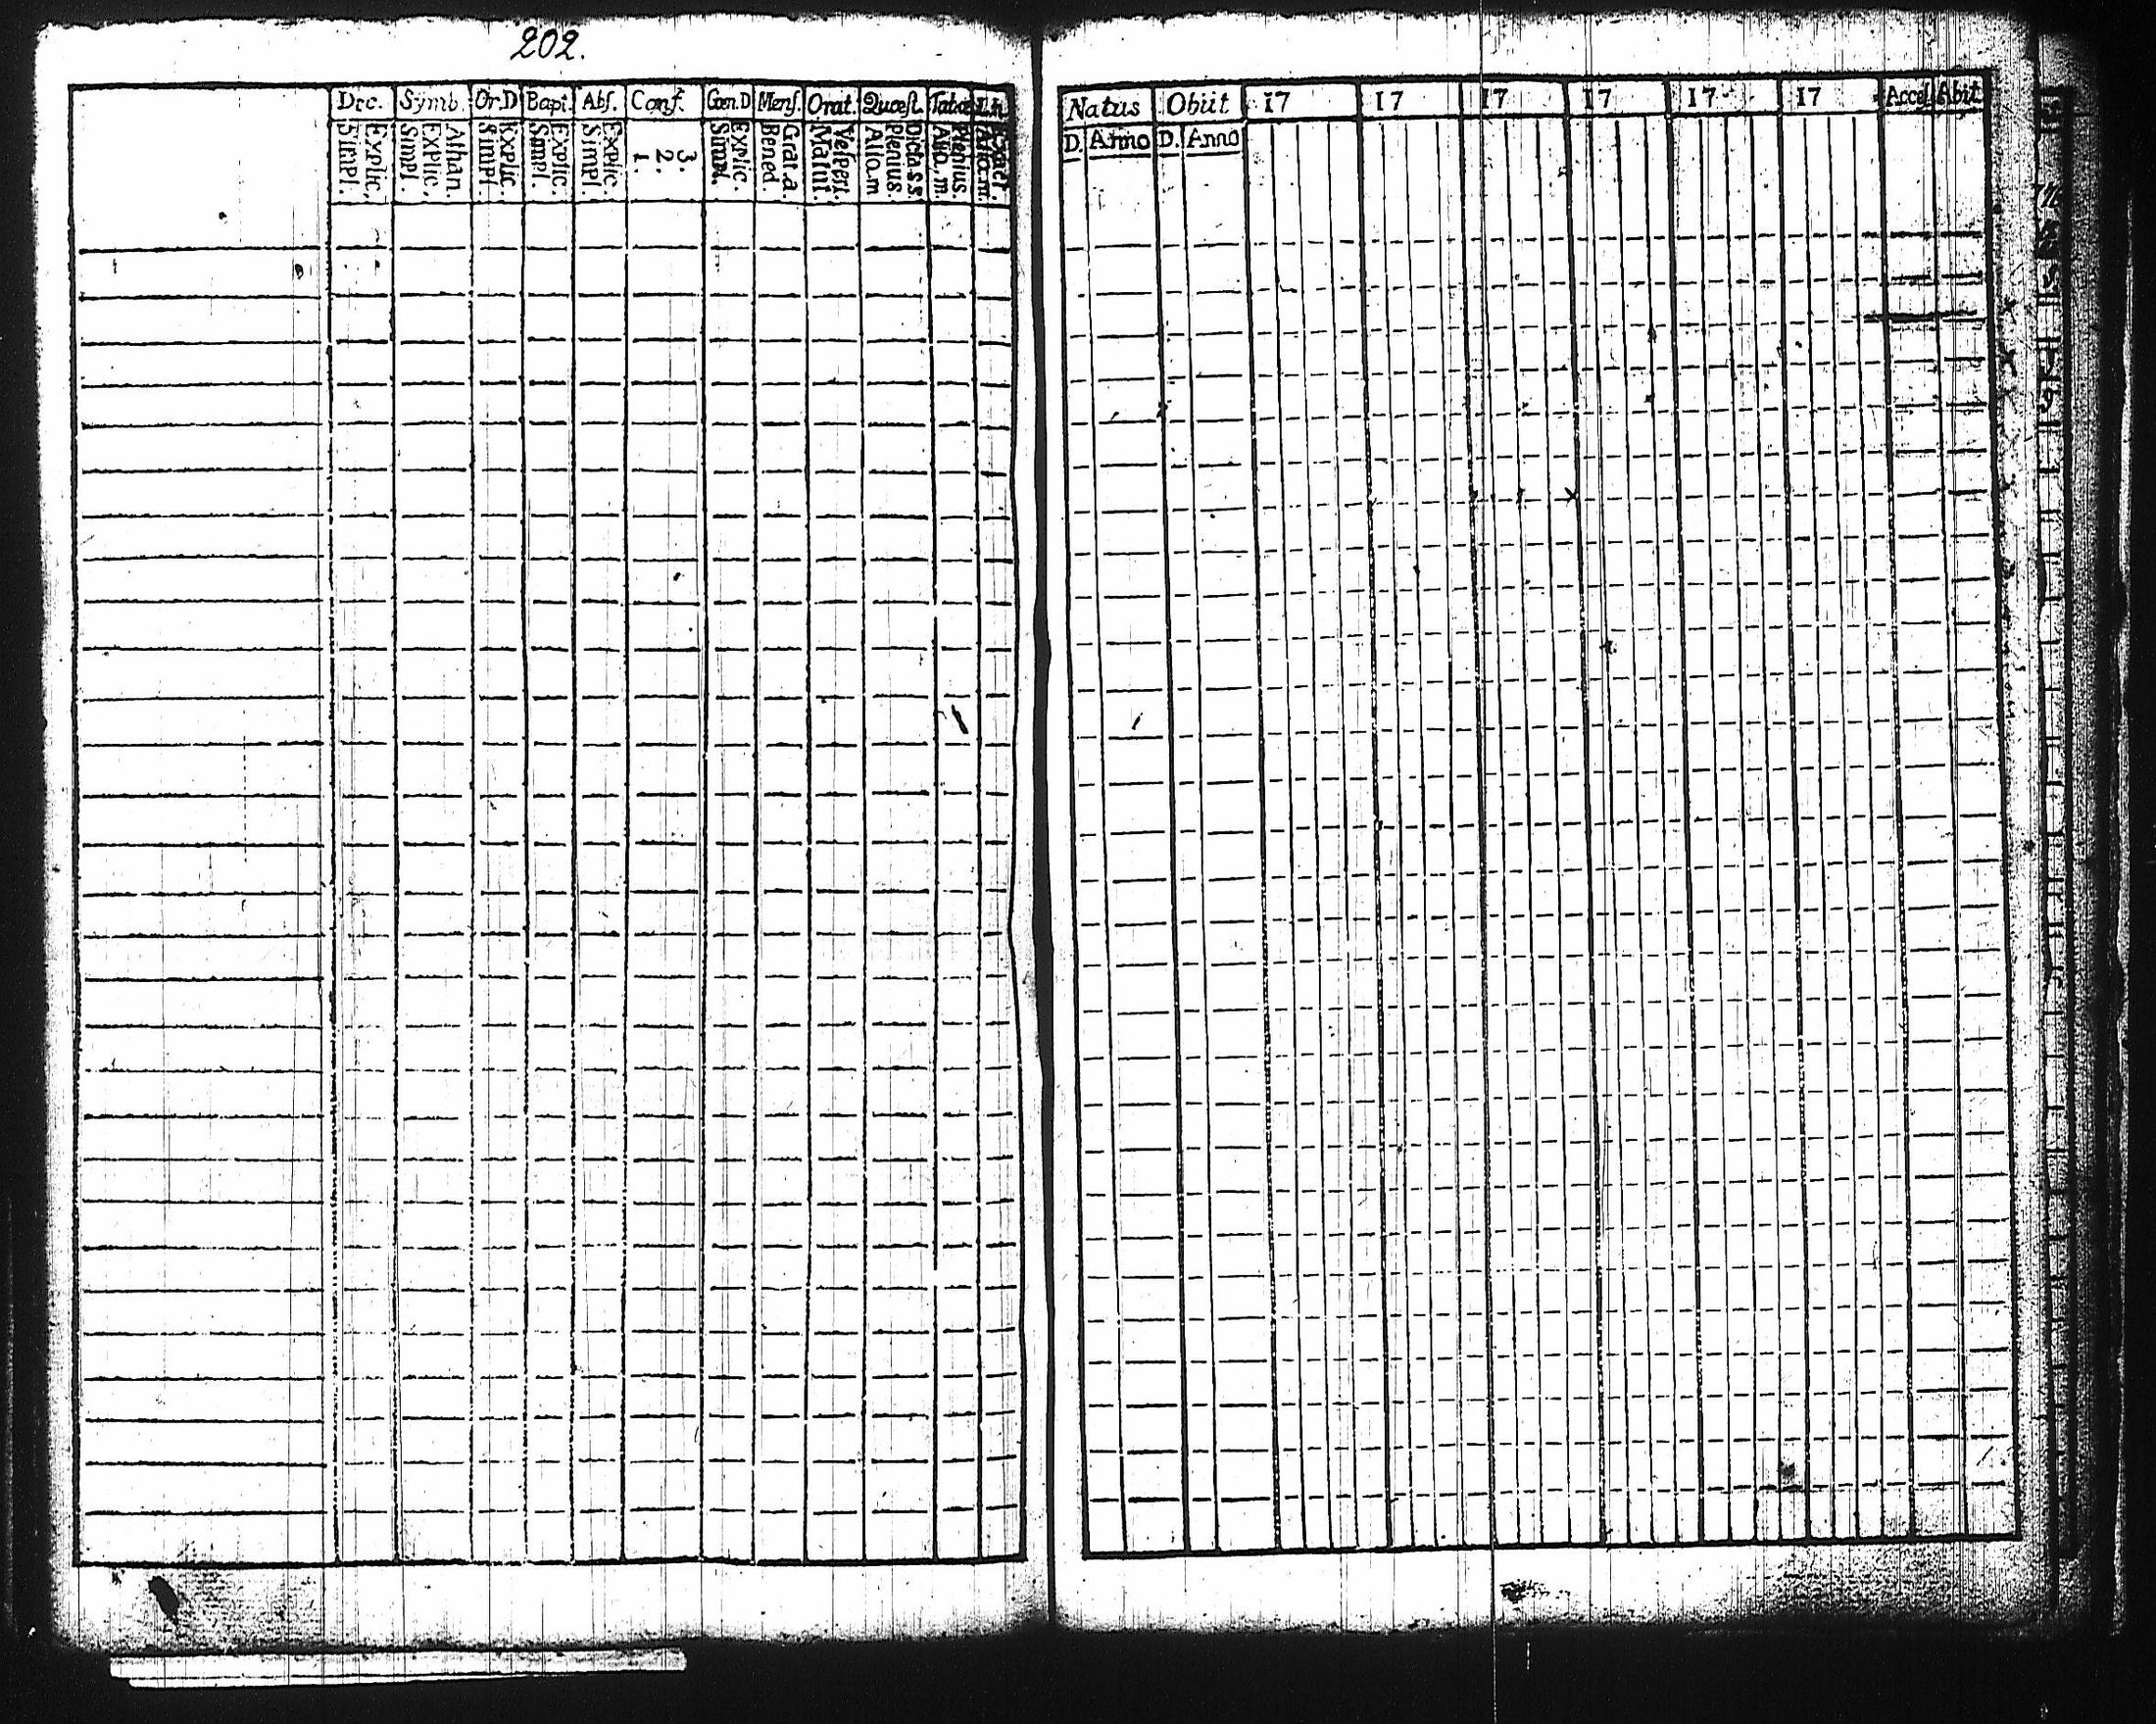 202.
Dec. Symb. Or.D Bapt. Abs. Conf. Cœn.D Mens. Orat. Quæst. Tabæ
Simpl. Explic. Simpl. Explic. Athan. Simpl. Explic. Simpl. Explic. Simpl. Explic. 1. 2. 3. Simpl. Explic. Bened. Grat.a. Matut. Vesperi. Alio.m Plenius. Dicta.s.s. Alio.m Plenius.
Natus Obiit 17 17 17 17 17 17 Acces. Abit
D. Anno D. Anno